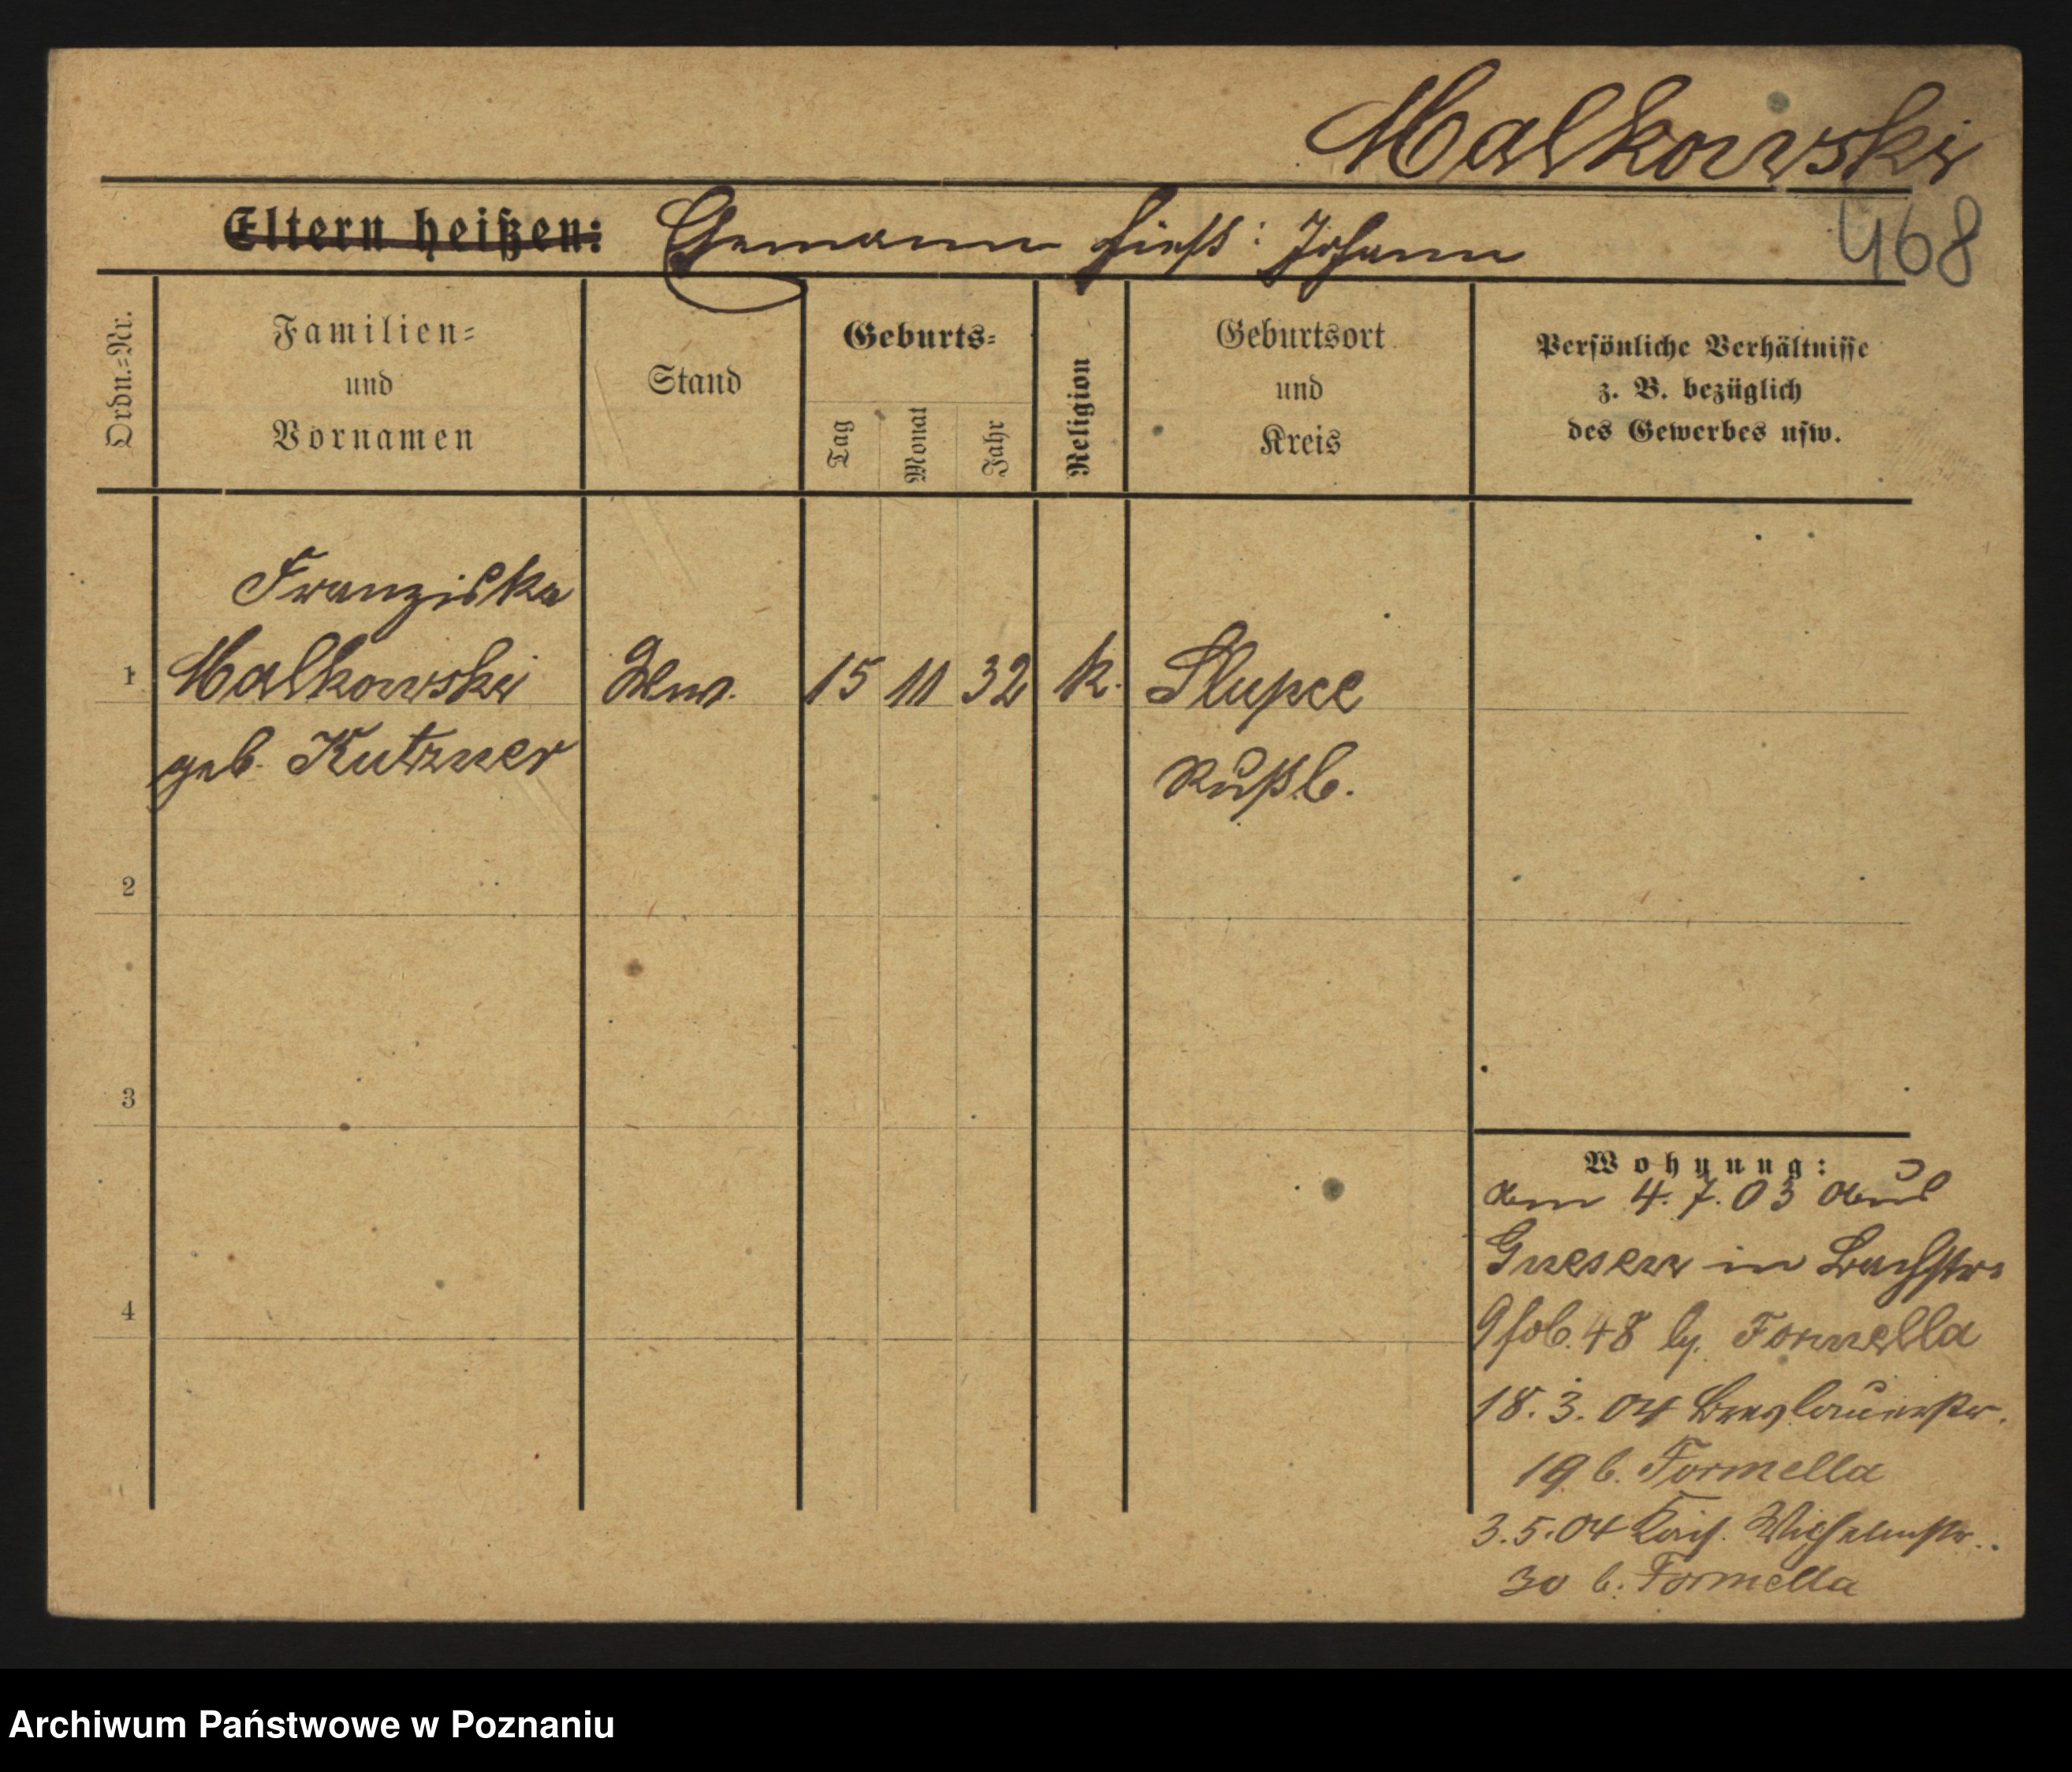 Malkowski
Eltern heißen: Ehemann hieß: Johann
468
Ordn.-Nr.
Familien-
und
Vornamen
Stand
Geburts-
Tag
Monat
Jahr
Religion
Geburtsort
und
Kreis
Persönliche Verhältnisse
z. B. bezüglich
des Gewerbes usw.
Franziska
1 Malkowski Wwe. 15 11 32 k. Slupce
geb. Kutzner
Rußl.
2
3
4
Wohnung:
am 4.7.03 aus
Gnesen in Bachstr.
48 b. Formella
18.3.04 Breslauerstr.
19 b. Formella
3.5.04 Kais. Wilhelmstr.
30 b. Formella
Archiwum Państwowe w Poznaniu